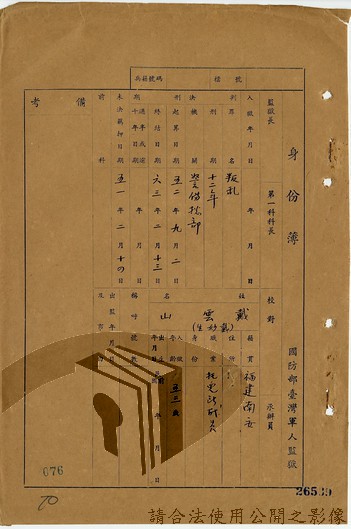 身份簿
國防部臺灣軍人監獄
兵籍號碼
標號
監獄長
第一科科長
校對
承辦員
入獄年月日
年 月 日
罪名
叛乱
刑期
十二年
法機關
警備總部
刑起算日期
五二年九月二日
終結日期
六三年二月十三日
未決羈押日期
五一年二月十四日
前科
備考
姓名
戴雲山
籍貫
福建南安
住所
職業
身份
出生年月日
五三歲
年 月 日
稱呼號數
出監年月日
及事由
676
70
26539
請合法使用公開之影像